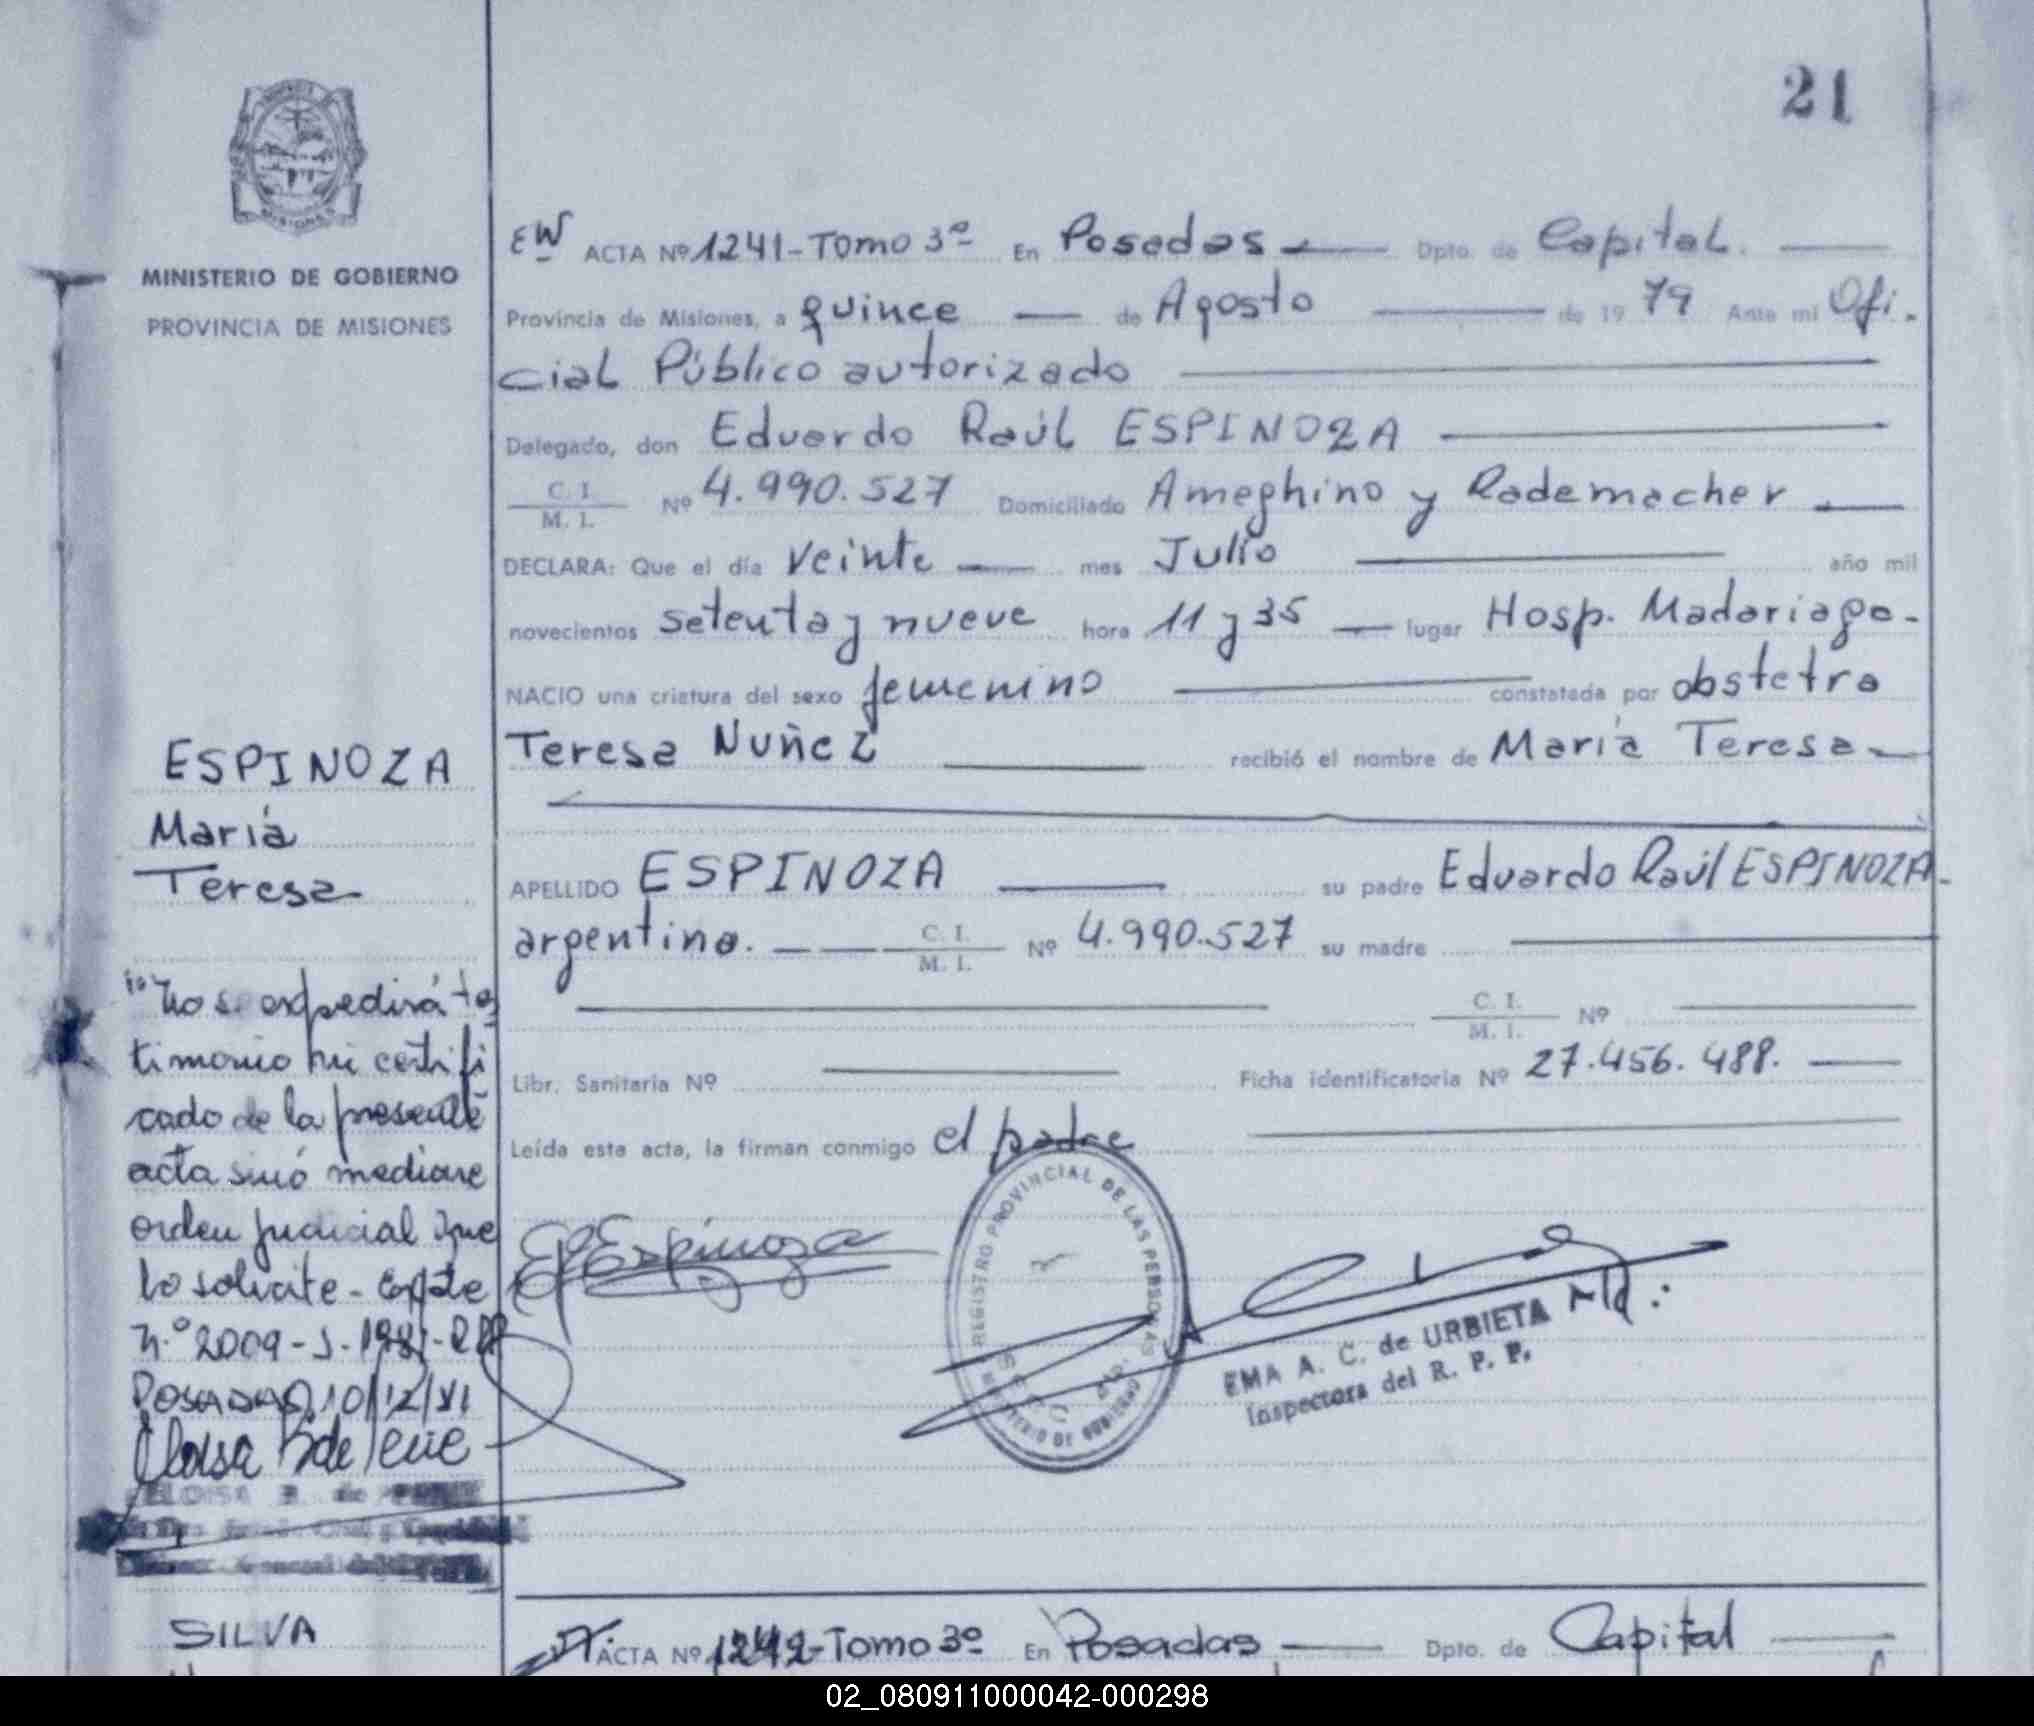 21
MINISTERIO DE GOBIERNO
PROVINCIA DE MISIONES
ACTA Nº 1241-Tomo 3º En Posadas Dpto. de Capital.
Provincia de Misiones, a quince de Agosto de 1979 Ante mi Ofi.
cial Público autorizado
Delegado, don Eduardo Raúl ESPINOZA
C. I.
M. I.
Nº 4.990.527 Domiciliado Ameghino y Rademacher
DECLARA: Que el día veinte mes Julio año mil
novecientos setenta y nueve hora 11 y 35 lugar Hosp. Madariaga.
NACIO una criatura del sexo femenino constatada por obstetra
Teresa Nuñez recibió el nombre de María Teresa
APELLIDO ESPINOZA su padre Eduardo Raúl ESPINOZA.
argentino. C. I.
M. I.
Nº 4.990.527 su madre
C. I.
M. I.
Nº
Libr. Sanitaria Nº Ficha identificatoria Nº 27.456.488.
Leída esta acta, la firman conmigo el padre
Espinoza
REGISTRO PROVINCIAL DE LAS PERSONAS
MINISTERIO DE GOBIERNO
EMA A. C. de URBIETA
Inspectora del R. P. P.
ESPINOZA
María
Teresa
"No se expedirá tes
timonio ni certifi
cado de la presente
acta sinó mediare
orden judicial que
lo solicite - Expte
N.º 2009-S-1981-RPP
POSADAS, 10/12/81
ELOISA B. de
SILVA
ACTA Nº 1242-Tomo 3º En Posadas Dpto. de Capital
02_080911000042-000298